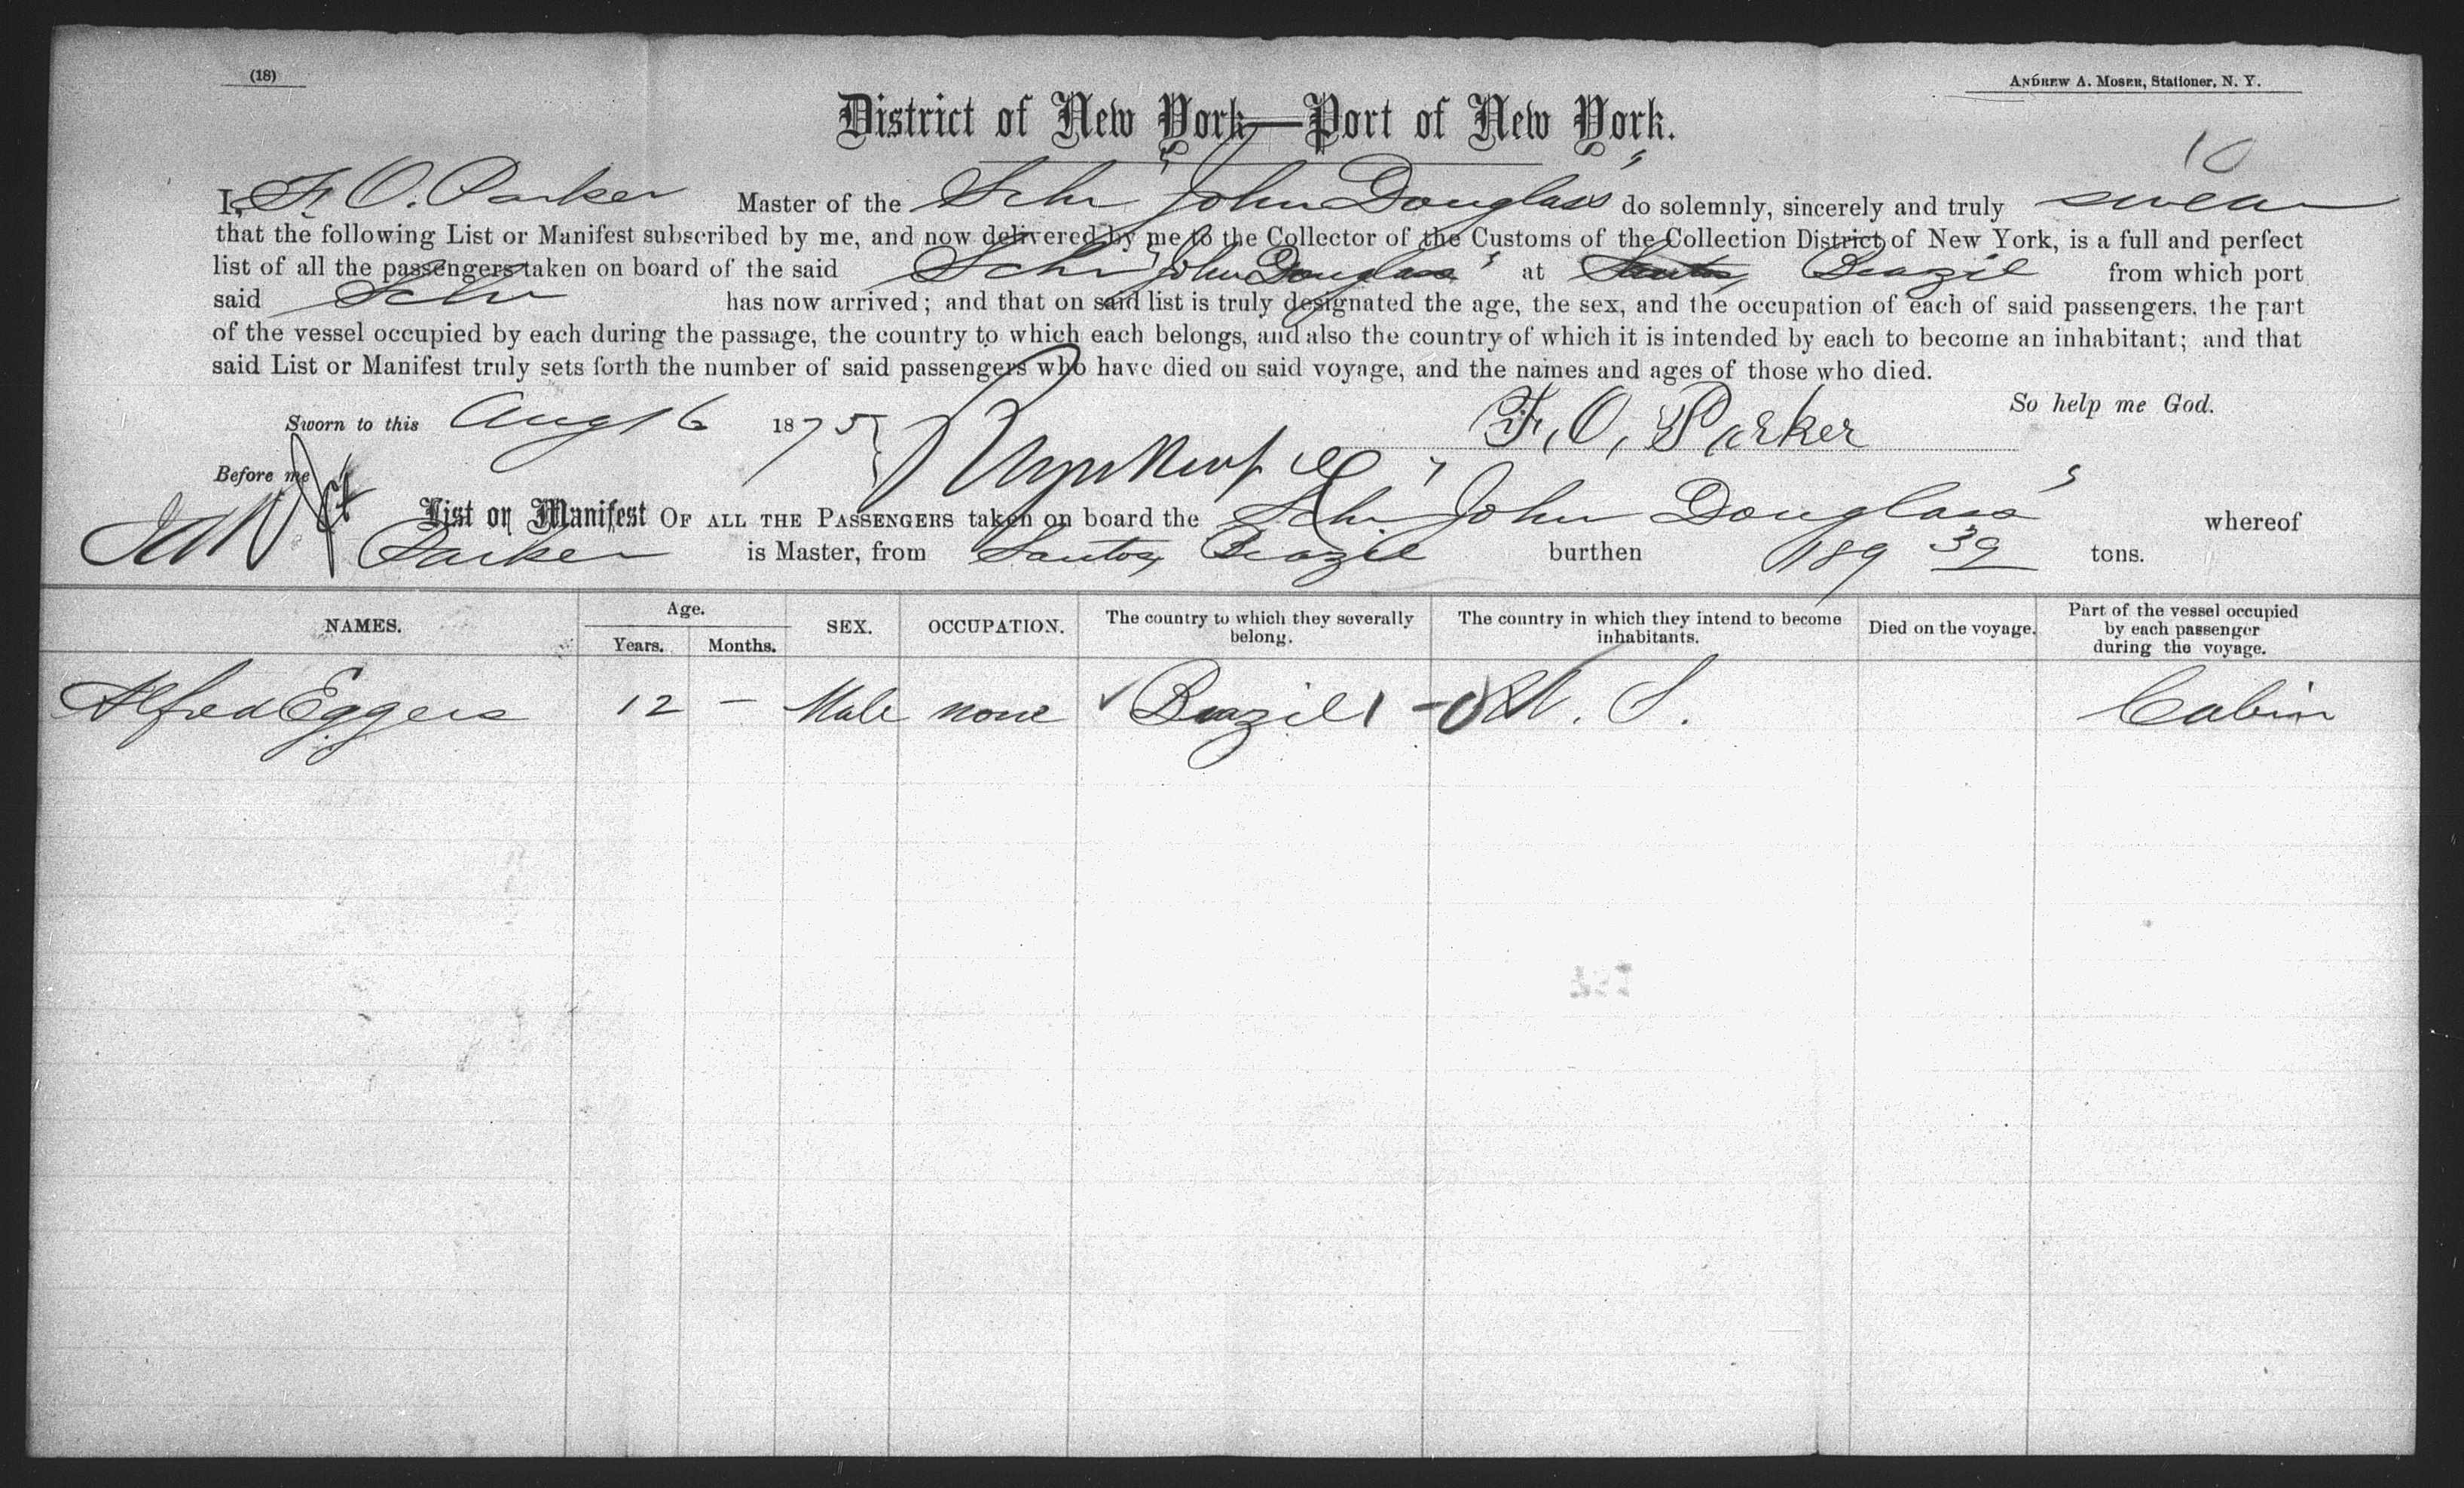 (18)
ANDREW A. MOSER, Stationer, N. Y.
District of New York—Port of New York.
10
I, F. O. Parker Master of the Schr "John Douglass" do solemnly, sincerely and truly swear
that the following List or Manifest subscribed by me, and now delivered by me to the Collector of the Customs of the Collection District of New York, is a full and perfect
list of all the passengers taken on board of the said Schr "John Douglass" at Santos, Brazil from which port
said Schr has now arrived; and that on said list is truly designated the age, the sex, and the occupation of each of said passengers, the part
of the vessel occupied by each during the passage, the country to which each belongs, and also the country of which it is intended by each to become an inhabitant; and that
said List or Manifest truly sets forth the number of said passengers who have died on said voyage, and the names and ages of those who died.
So help me God.
Sworn to this Aug 16 1875 F. O. Parker
Before me
List or Manifest OF ALL THE PASSENGERS taken on board the Schr "John Douglass" whereof
Parker is Master, from Santos, Brazil burthen 189 39 tons.
NAMES. Age. Years. Months. SEX. OCCUPATION. The country to which they severally belong. The country in which they intend to become inhabitants. Died on the voyage. Part of the vessel occupied by each passenger during the voyage.
Alfred Eggers 12 – Male none Brazil 1 U. S. Cabin